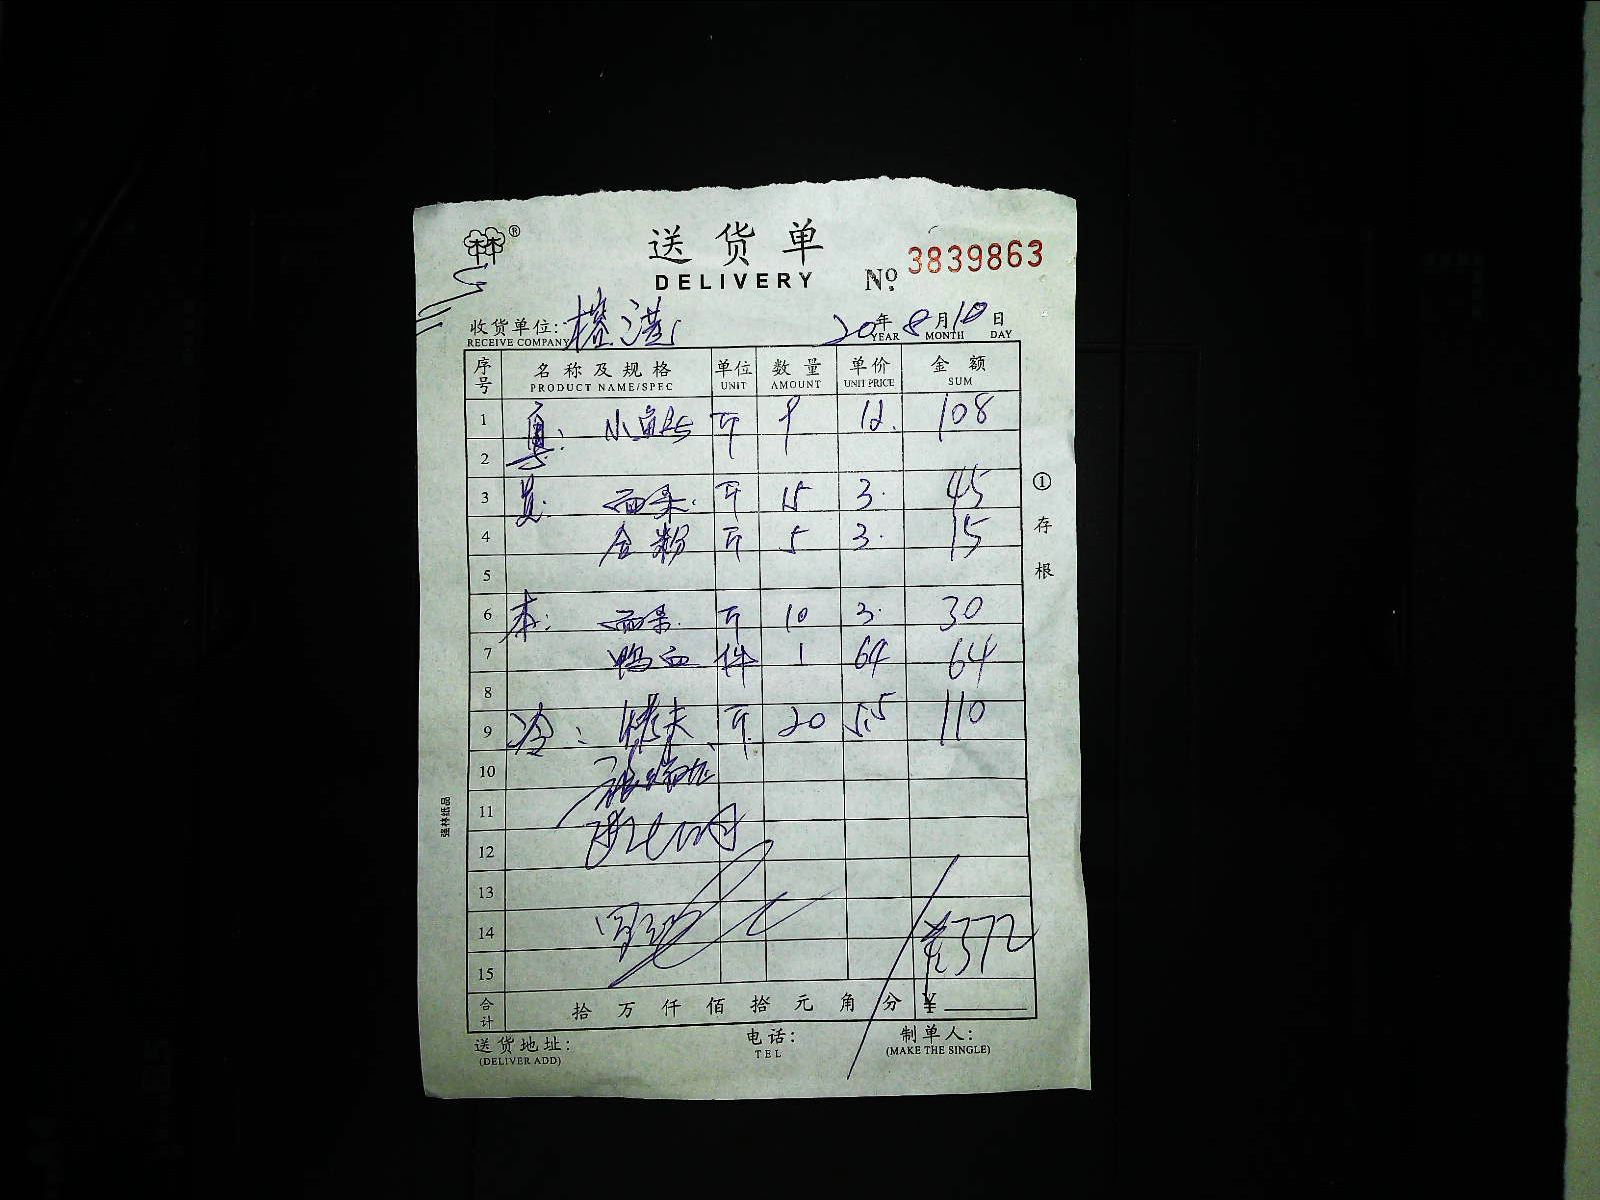 送货单
DELIVERY
№ 3839863
收货单位: 榕港 20年8月10日
RECEIVE COMPANY YEAR MONTH DAY
序号 名称及规格 单位 数量 单价 金额
PRODUCT NAME/SPEC UNIT AMOUNT UNIT PRICE SUM
1 斤 9 12. 108
2
3 斤 15 3. 45
4 斤 5 3. 15
5
6 本: 斤 10 3. 30
7 鸭血 件 1 64 64
8
9 冷: 烤夫 斤 20 5.5 110
10
11
12
13
14 ¥372
15
合计 拾万仟佰拾元角分 ¥
送货地址: 电话: 制单人:
(DELIVER ADD) TEL (MAKE THE SINGLE)
①存根
强林纸品